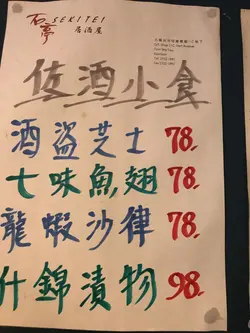 石亭
SEKITEI
居酒屋
佐酒小食
酒盗芝士 78.
七味魚翅 78.
龍蝦沙律 78.
什錦漬物 98.